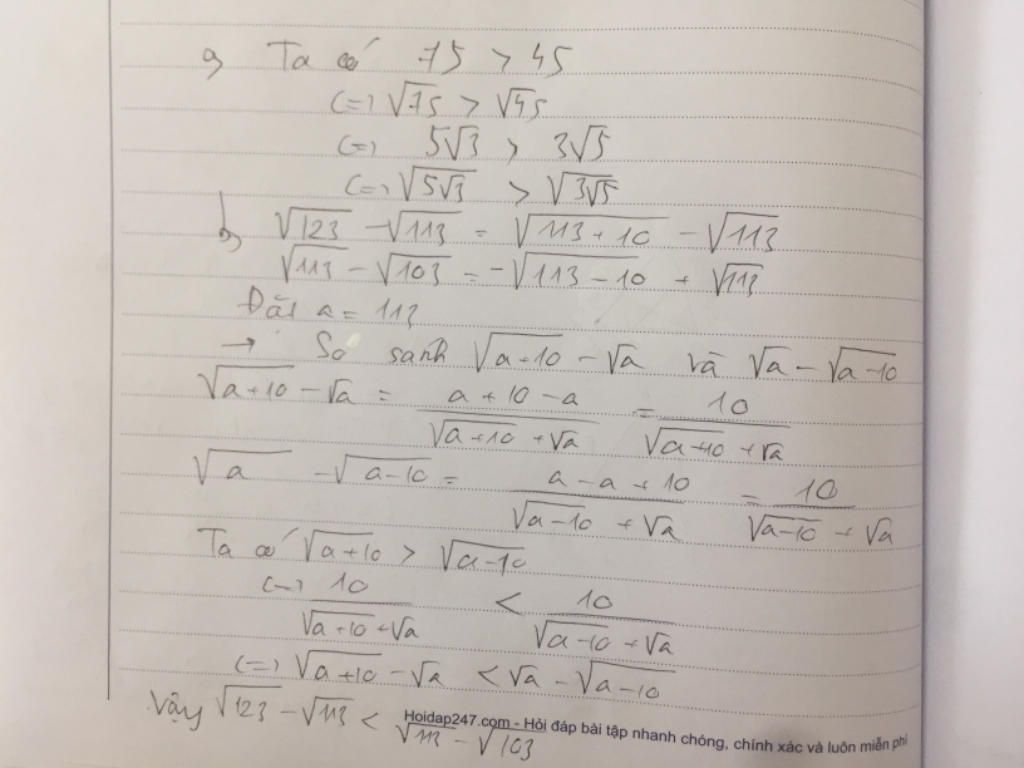 a, Ta có 75 > 45
(=) √75 > √45
(=) 5√3 > 3√5
(=) √(5√3) > √(3√5)
b, √123 - √113 = √(113 + 10) - √113
√113 - √103 = -√(113 - 10) + √113
Đặt a = 113
→ So sanh √(a+10) - √a và √a - √(a-10)
√(a+10) - √a = (a + 10 - a)/(√(a+10) + √a) = 10/(√(a+10) + √a)
√a - √(a-10) = (a - a + 10)/(√(a-10) + √a) = 10/(√(a-10) + √a)
Ta có √(a+10) > √(a-10)
(=) 10/(√(a+10) + √a) < 10/(√(a-10) + √a)
(=) √(a+10) - √a < √a - √(a-10)
Vậy √123 - √113 < √113 - √103
Hoidap247.com - Hỏi đáp bài tập nhanh chóng, chính xác và luôn miễn phí